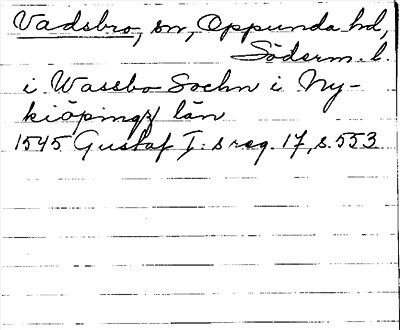 Vadsbro, sn, Oppunda hd,
Söderm. l.
i Wassbo Sochn i Ny-
kiöpingz län
1545 Gustaf I:s reg. 17, s. 553